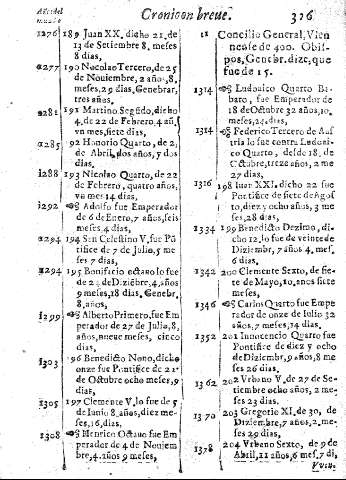 Años del
mundo
Cronicon breue.
316
1276 189 Juan XX. dicho 21. de
13 de Setiembre 8, meses
8 dias,
1277 190 Nocolao Tercero, de 25
de Nouiembre, 2 años, 8,
meses, 29 dias, Genebrar,
tres años,
1281 191 Martino Segũdo, dicho
4, de 22 de Febrero, 4 añ,
vn mes, siete dias,
1285 192 Honorio Quarto, de 2,
de Abril, dos años, y dos
dias,
1288 193 Nicolao Quarto, de 22
de Febrero, quatro años,
vn mes 14 dias,
1292 Adolfo fue Emperador
de 6 de Enero, 7 años, seis
meses, 4 dias,
1294 194 San Celestino V, fue Põ
tifice de 7 de Julio, 5 me
ses 7 dias,
1294 195 Bonifacio octauo lo fue
de 24 de Diziẽbre, 4, años
9 meses, 18 dias, Genebr,
8, años,
1299 Alberto Primero, fue Em
perador de 27 de Julio, 8,
años, nueue meses, cinco
dias,
1303 196 Benedicto Nono, dicho
onze fue Pontifice de 21
de Octubre ocho meses, 9
dias,
1305 197 Clemente V, lo fue de 5
de Junio 8, años, diez me-
ses, 16, dias,
1308 Henrico Octauo fue Em
perador de 4 de Nouiem
bre, 4, años 9 meses,
11 Concilio General, Vien
nense de 400. Obis-
pos, Genebr. dize, que
fue de 15.
1314 Ludouico Quarto Bã
baro, fue Emperador de
18 de Octubre 32 años, 10,
meses, 24 dias,
1314 Federico Tercero de Aus
tria lo fue contra Ludoui
co Quarto, desde 18, de
Octubre, treze años, 2 me
27 dias,
1316 198 Juan XXI. dicho 22 fue
Pontifice de siete de Agos
to, diez y ocho años, 3 me
ses, 28 dias,
1334 199 Benedicto Dezimo, di
cho 12, lo fue de veinte de
Diziembre, 7 años, 4, mes.
6 dias,
1342 200 Clemente Sexto, de sie-
te de Mayo, 10, anos siete
meses,
1346 Carlos Quarto fue Empe
rador de onze de Iulio 32
años, 7 meses, 14 dias,
1352 201 Innocencio Quarto fue
Pontifice de diez y ocho
de Diziembr, 9 años, 8 me
ses 26 dias,
1362 202 Vrbano V, de 27 de Se-
tiembre ocho años, 2 me-
ses 23 dias,
1370 203 Gregorio XI, de 30, de
Diziembre, 7 años, 2, me-
ses, 29 dias,
1378 204 Vrbano Sexto, de 9 de
Abril, 11 años, 6 mes, 7 di,